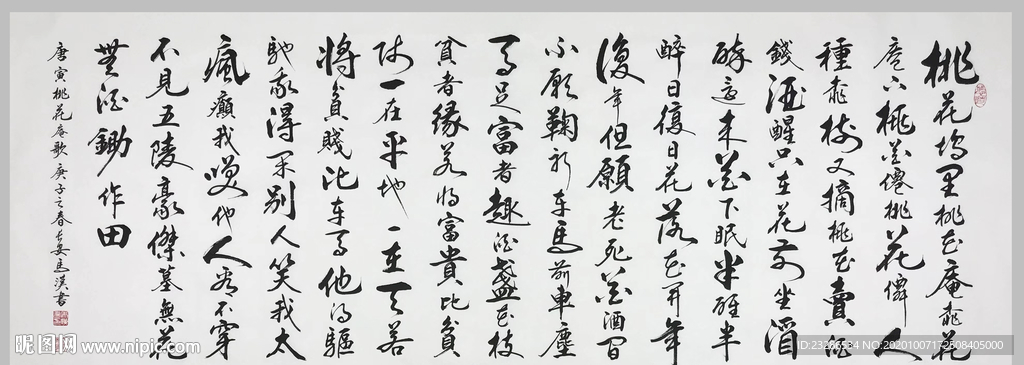 桃花塢里桃花庵桃花
庵下桃花僊桃花僊人
種桃樹又摘桃花賣酒
錢酒醒只在花前坐酒
醉還来花下眠半醒半
醉日復日花落花開年
復年但願老死花酒間
不願鞠躬車馬前車塵
馬足富者趣酒盞花枝
貧者緣若將富貴比貧
賤一在平地一在天若
將貧賤比車馬他得驅
馳我得閑别人笑我太
瘋癲我咲他人看不穿
不見五陵豪傑墓無花
無酒鋤作田
唐寅桃花庵歌 庚子之春長安馬漢書
昵图网 www.nipic.com
ID:23286534 NO:20201007172508405000